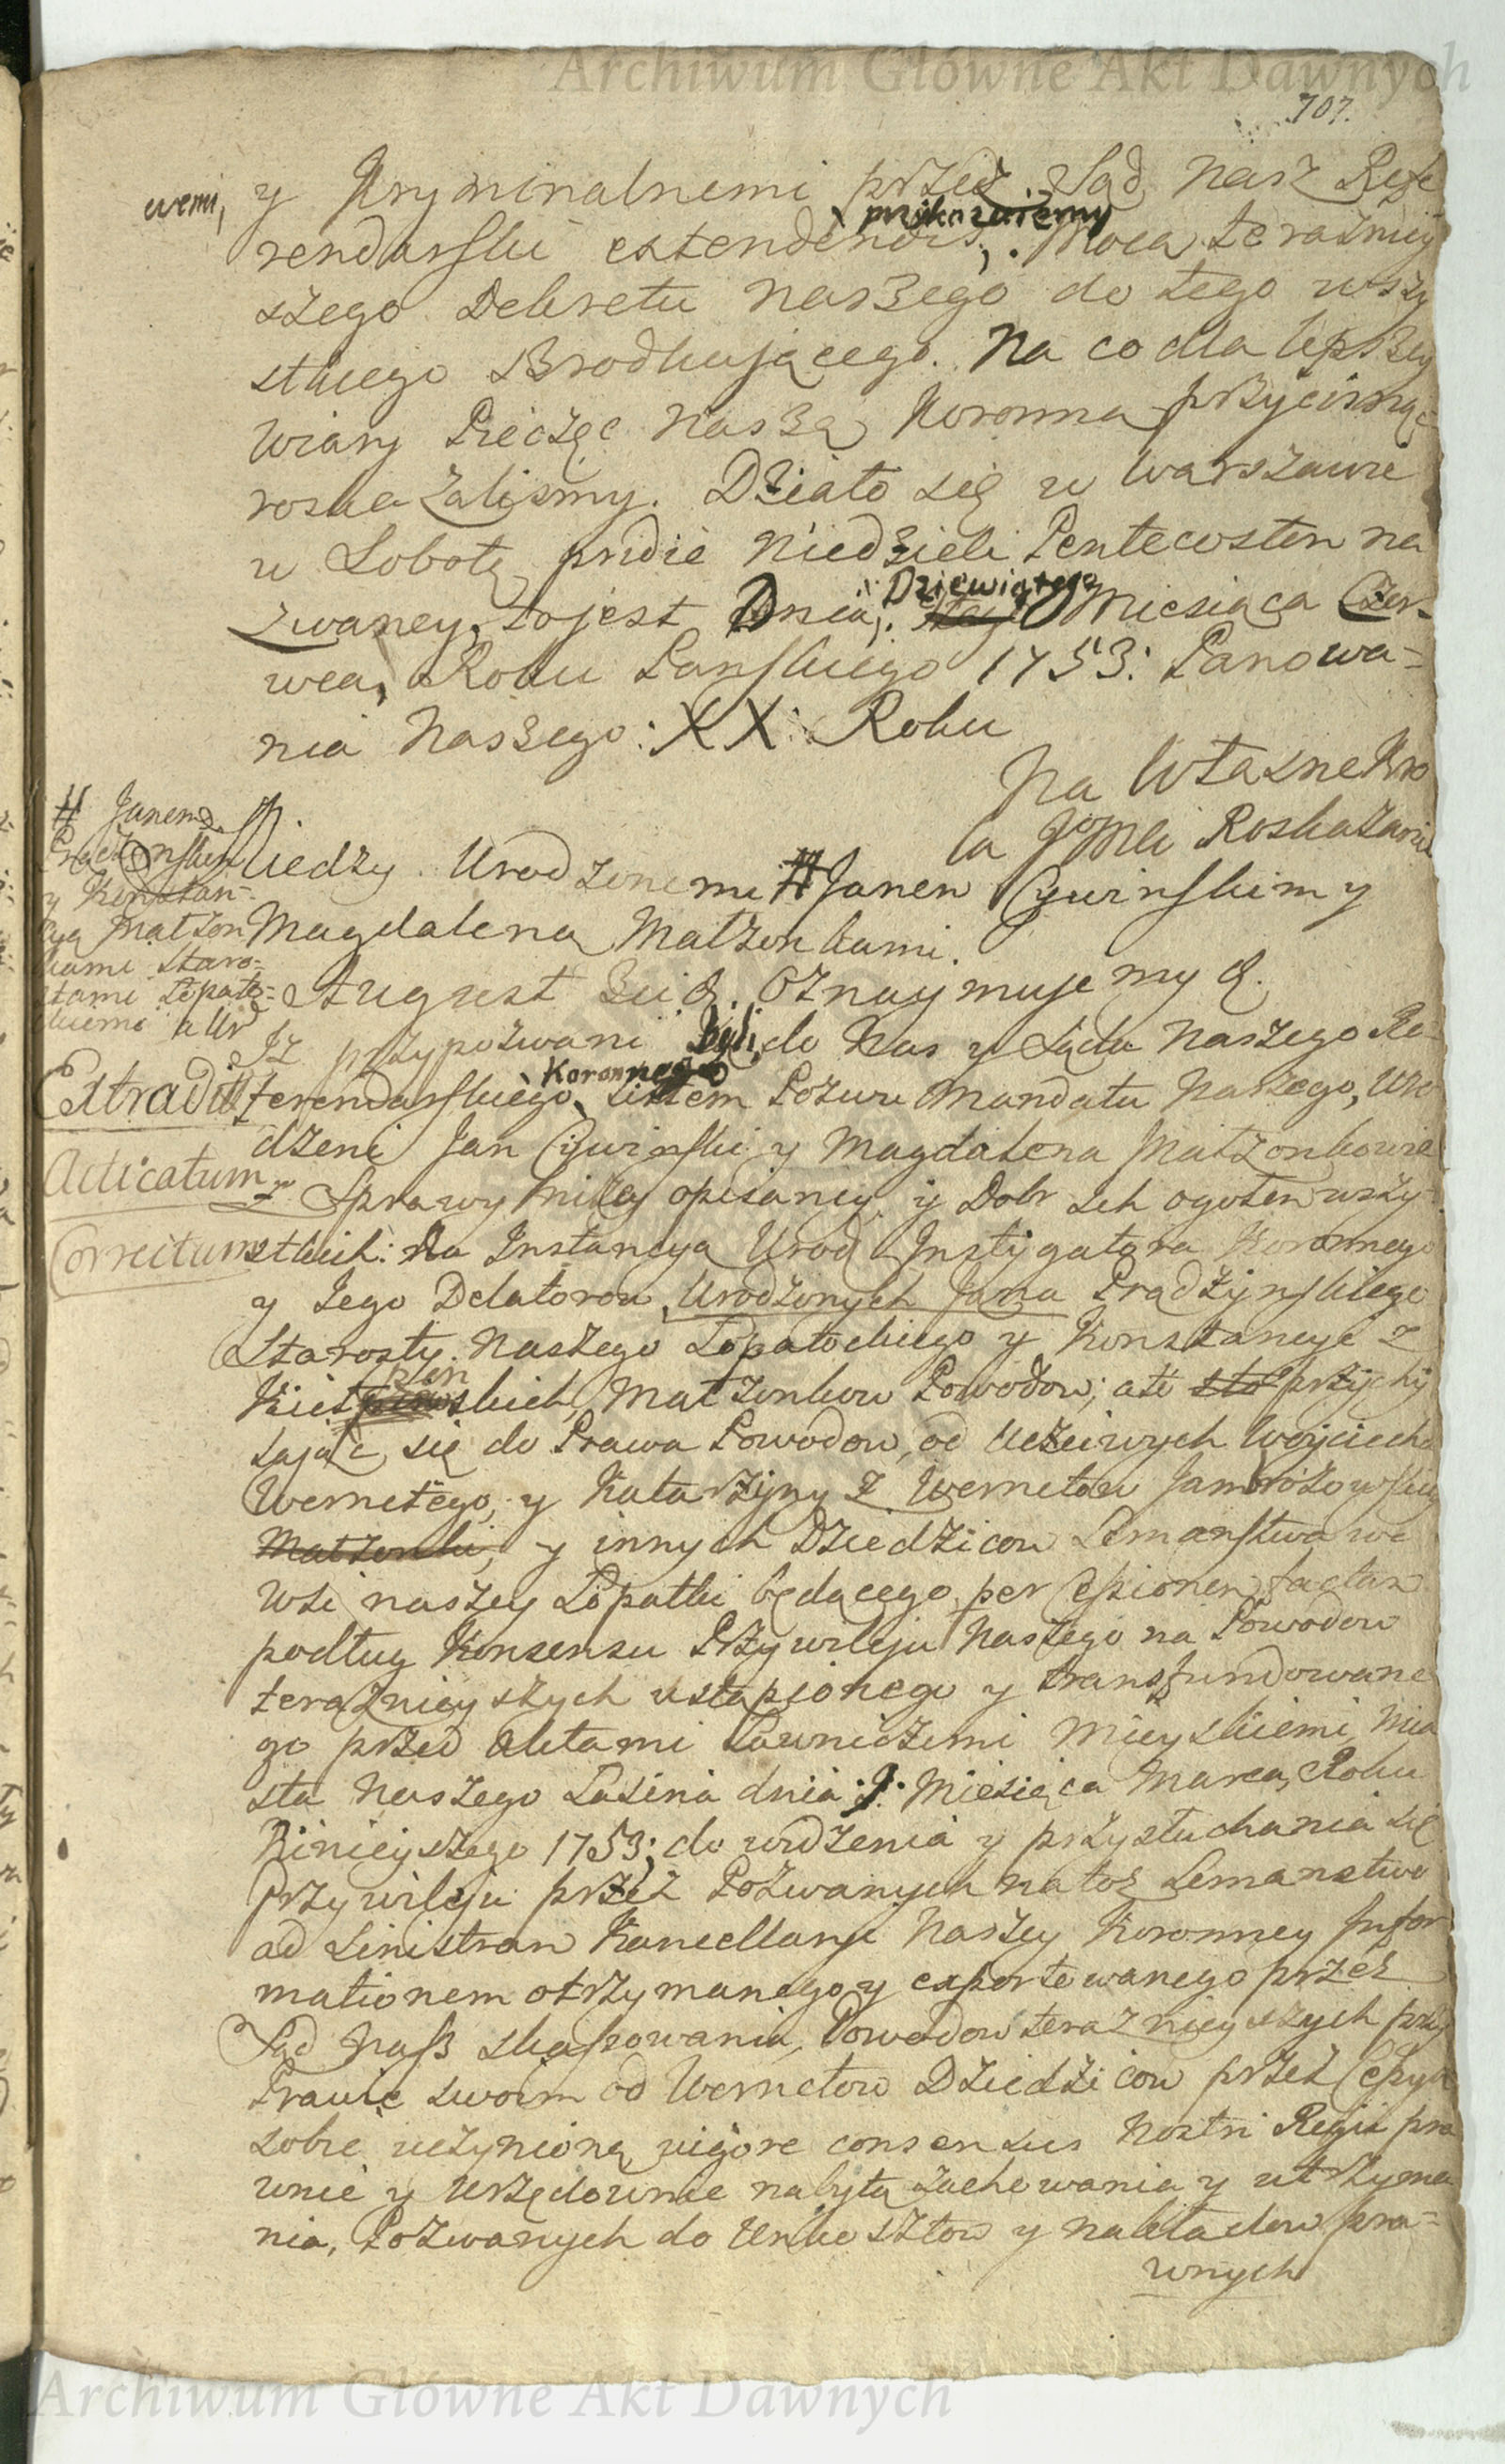 Archiwum Główne Akt Dawnych
707.
wemi,
y Kryminalnemi przed Sąd Nasz Refe
przykazuiemy
rendarski extendendis, . Mocą teraźniey
szego Dekretu Naszego do tego wszy
stkiego Srodkującego. Na co dla lepszey
Wiary Pieczęc Naszą Koronną przycisnąc
roskazalismy. Działo się w Warszawie
w Sobotę pridie Niedzieli Pentecosten na
Dziewiątego
zwaney, to jest Dnia, Miesiąca Czer-
wca, Roku Panskiego 1753: Panowa-
nia Naszego: XX: Roku
Na Własne Kro
la JoMci Roskazanie
# Janem
Prądzynskim
y Konstan-
cyą Małżon
kami Staro-
stami Łopato-
ckiemi a Ur
Miedzy Urodzonemi # Janem Cywinskim y
Magdaleną Małżonkami.
August III &. Oznaymujemy &.
Iż przypozwani byli do Nas y Sądu Naszego Re-
Koronnego
Extradit
ferendarskiego, Listem Pozwu Mandatu Naszego, Uro
dzeni Jan Cywinski y Magdalena Małżonkowie
Aedicatum
z Sprawy niżey opisaney y Dobr Ich ogołem wszy-
Correctum
stkich: Na Instancyą Urod Instygatora Koronnego
y Jego Delatorow Urodzonych Jana Prądzynskiego
Starosty Naszego Łopatockiego y Konstancyi z
pin
Kiełskich, Małżonkow Powodow; ale sto przychy
lając się do Prawa Powodow, od Uczciwych Woyciecha
Wernetego, y Katarzyny z Wernetow Jambrozowskiey
Małżonki, y innych Dziedzicow Lemanstwa we
Wsi naszey Łopatki będącego, per Cessionem factam
podług Konsensu Przywileju Naszego na Powodow
teraznieyszych ustąpionego y transfundowane
go przed Aktami Ławniczemi Mieyskiemi Mia
sta Naszego Lasina dnia 9. Miesiąca Marca, Roku
Ninieyszego 1753; do widzenia y przysłuchania się
Przywileju przez Pozwanych na toż Lemanstwo
ad sinistram Kancellaryi Naszey Koronney Infor
mationem otrzymanego y exportowanego przez
Sąd Nasz skassowania, Powodow teraznieyszych przy
Prawie swoim od Wernetow Dziedzicow przez Cessyą
sobie uczynioną vigore consensus Nostri Regii pra
wnie y Urzędownie nabytą zachowania y utrzyma
nia, Pozwanych do Unkosztow y nakładow pra-
wnych
Archiwum Główne Akt Dawnych